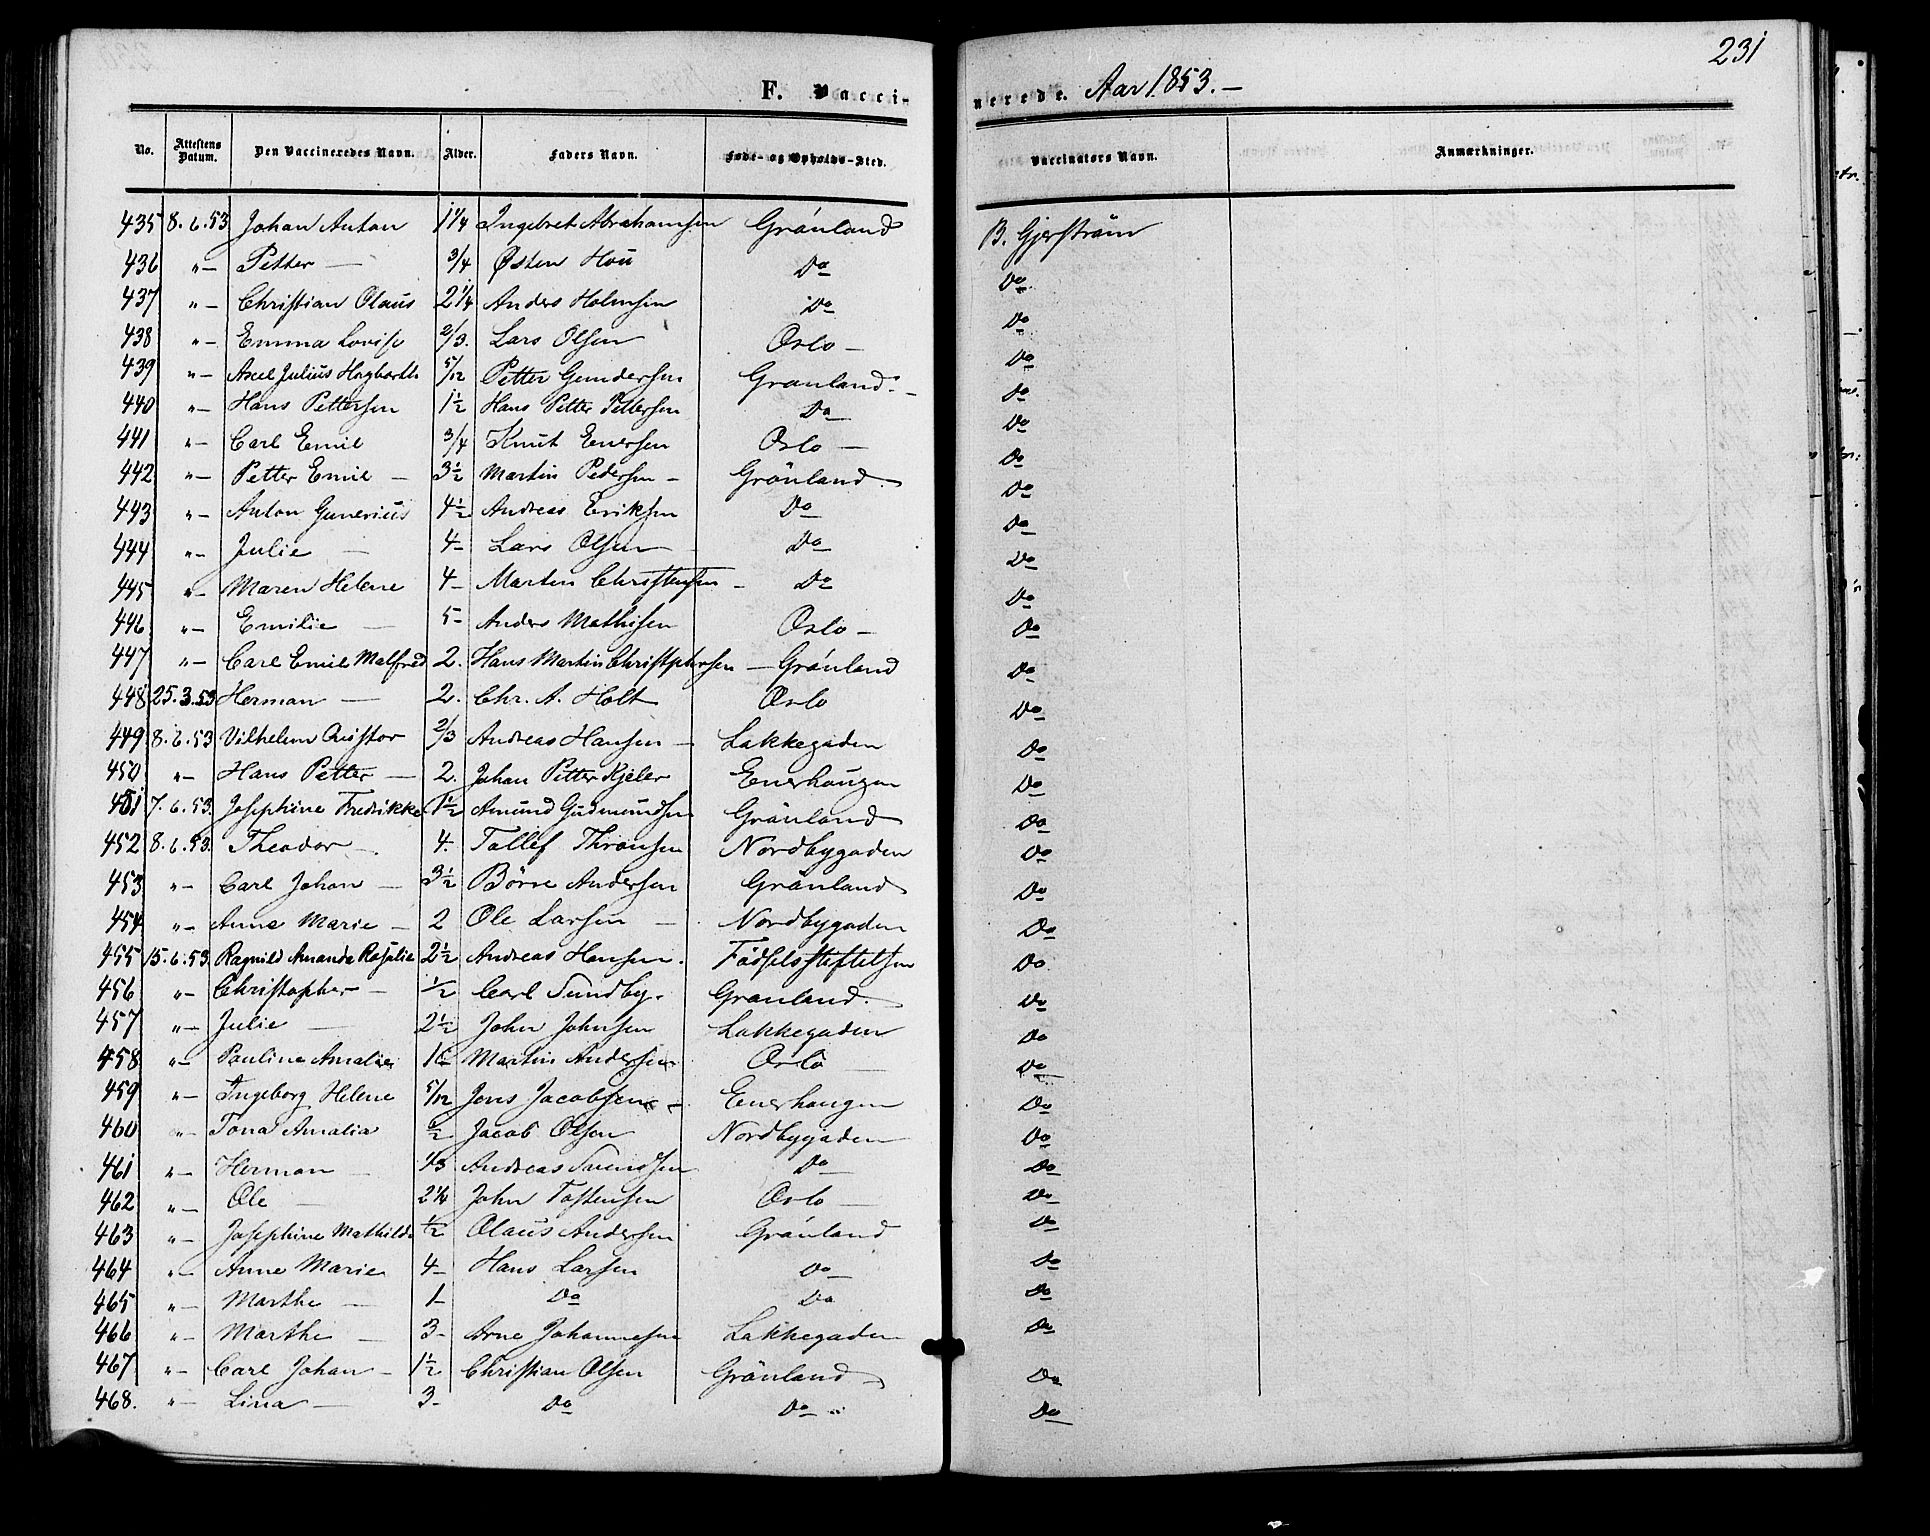 231
F. Vaccinerede. Aar 1853.—
No. Attestens Datum. Den Vaccineredes Navn. Alder. Faders Navn. Føde- og Opholds-Sted. Vaccinators Navn. Anmærkninger.
435 8.6.53 Johan Anton 1 1/4 Ingebret Abrahamsen Grönland B. Gjerström
436 "— Petter — 3/4 Østen Hou Do Do
437 "— Christian Olaus 2 1/4 Anders Holmsen Do Do
438 "— Emma Lovise 2/3. Lars Olsen Oslo — Do
439 "— Axel Julius Hagbarth 5/12 Petter Gundersen Grönland.— Do
440 "— Hans Pettersen 1 1/2 Hans Petter Pettersen Do Do
441 "— Carl Emil 3/4 Knut Enersen Oslo — Do
442 "— Petter Emil — 3 1/2 Martin Pedersen — Grönland Do
443 "— Anton Gunerius 4 1/2 Andreas Eriksen Do Do
444 "— Julie — 4— Lars Olsen — Do Do
445 "— Maren Helene 4— Martin Christensen — Do Do
446 "— Emilie — 5— Anders Mathisen Oslo — Do
447 "— Carl Emil Malfred 2. Hans Martin Christphersen — Grönland Do
448 25.3.53 Herman — 2. Chr. A. Holt Oslo Do
449 8.6.53 Vilhelm 2/3 Andreas Hansen — Lakkegaden Do
450 "— Hans Petter — 2. Johan Petter Kjeler Enerhaugen Do
451 7.6.53. Josephine Fredrikke 1 1/2 Amund Gudmundsen Grönland Do
452 8.6.53. Theodor —. 4. Tollef Thronsen Nordbygaden Do
453 "— Carl Johan — 3 1/2 Börre Andersen Grönland Do
454 "— Anne Marie — 2 Ole Larsen — Nordbygaden Do
455 15.6.53 Ragnild Amanda Rosalie 2 1/2 Andreas Hansen. Födselsstiftelsen Do
456 "— Christopher — 1/2 Carl Sundby. Grönland. Do
457 "— Julie — 2 1/2 John Johnsen Lakkegaden Do
458 "— Pauline Amalie Martin Andersen Oslo — Do
459 "— Ingeborg Helene 5/12 Jens Jacobsen — Enerhaugen Do
460 "— Tona Amalia Jacob Olsen Nordbygaden Do
461 "— Herman — Andreas Svendsen Do Do
462 "— Ole — 2 1/4 John Tostensen Oslo — Do
463 "— Josephine Mathilde 1/2 Olaus Andersen Grönland Do
464 "— Anne Marie 4— Hans Larsen Do Do
465 "— Marthe — 1— Do Do Do
466 "— Marthe — 3— Arne Johannesen Lakkegaden Do
467 "— Carl Johan — 1 1/2 Christian Olsen Grönland — Do
468. "— Lina — 3— Do Do " Do